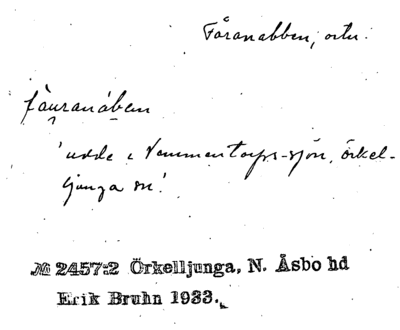 Fåranabben, ortn.
fåuranáben
'udde i Vemmentorps-sjön, Örkel-
ljunga sn.'
№ 2457:2 Örkelljunga, N. Åsbo hd
Erik Bruhn 1933.